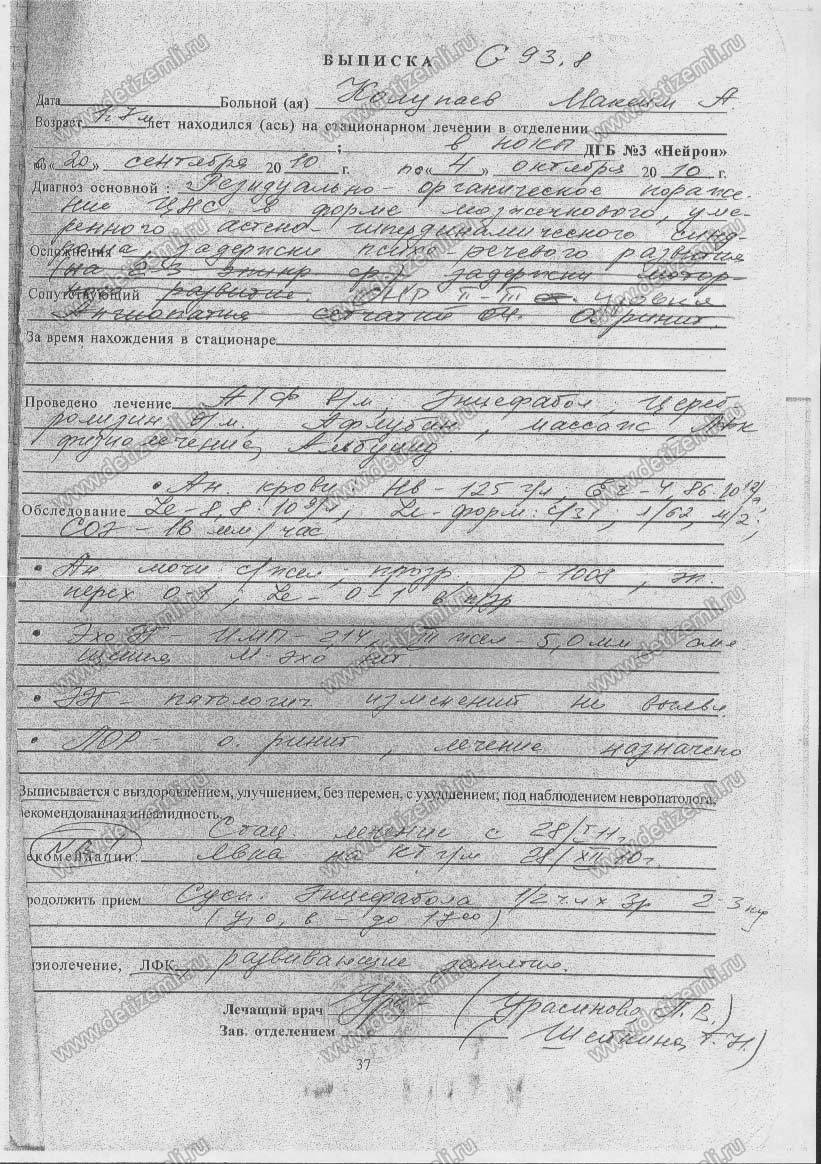 ВЫПИСКА G 93.8
Дата Больной (ая) Колупаев Максим А.
Возраст лет находился (ась) на стационарном лечении в отделении
; в НОКЫ ДГБ №3 «Нейрон»
«20» сентября 2010 г. по «4» октября 2010 г.
Диагноз основной : Резидуально-органическое пораже-
ние ЦНС в форме мозжечкового, уме-
ренного астено-гипердинамического синд-
Осложнения рома, задержки психо-речевого развития
(на 2-3 эпикр ср), задержки мотор-
Сопутствующий ного развития. ОНР II-III уровня
Ангиопатия сетчатки О. ринит.
За время нахождения в стационаре
Проведено лечение АТФ в/м, Энцефабол, Цереб-
ролизин в/м, Афлубин, массаж, ЛФК
физиолечение, Альбуцид.
• Ан. крови Hb-125 г/л; Er-4,86·10 12/л,
Обследование Le-8,8·10 9/л, Le-форм: с/31; л/62, м/2;
СОЭ-16 мм/час
• Ан мочи с/жел, прозр, р-1008, эп.
перех 0-1; Le-0-1 в п/зр
• Эхо ЭГ- ИМП-214, III жел-5,0мм, сме
щения М-эхо нет.
• ЭЭГ- патологич изменений не выявл
• ЛОР- о. ринит, лечение назначено
Выписывается с выздоровлением, улучшением, без перемен, с ухудшением; под наблюдением невропатолога,
рекомендованная инвалидность.
Стац. лечение с 28/ 11г.
NB!
екомендации: Явка на КТ г/м 28/XII 10г.
родолжить прием Сусп. Энцефабола 1/2 ч.л х 3р 2-3
(у, о, в - до 17 00)
изиолечение, ЛФК, развивающие занятия.
Лечащий врач (Урасинова Т. В.)
Зав. отделением Т. Н.)
37
www.detizemli.ru